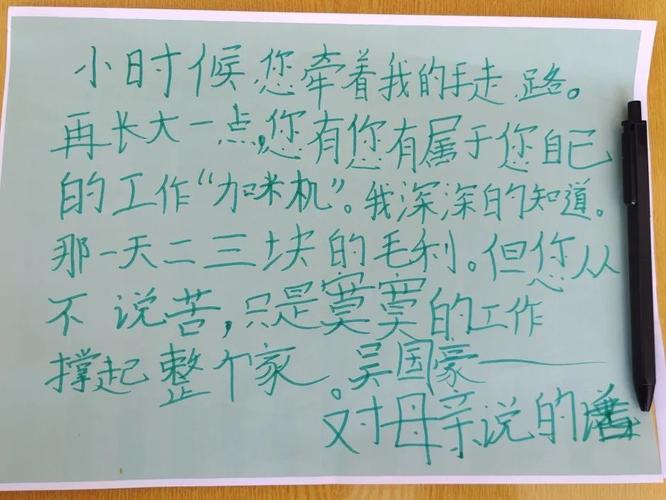 小时候您牵着我的手走路。
再长大一点,您有您有属于您自己
的工作“加米机”。我深深的知道。
那一天二三块的毛利。但您从
不说苦,只是寞寞的工作
撑起整个家。吴国豪——
对母亲说的